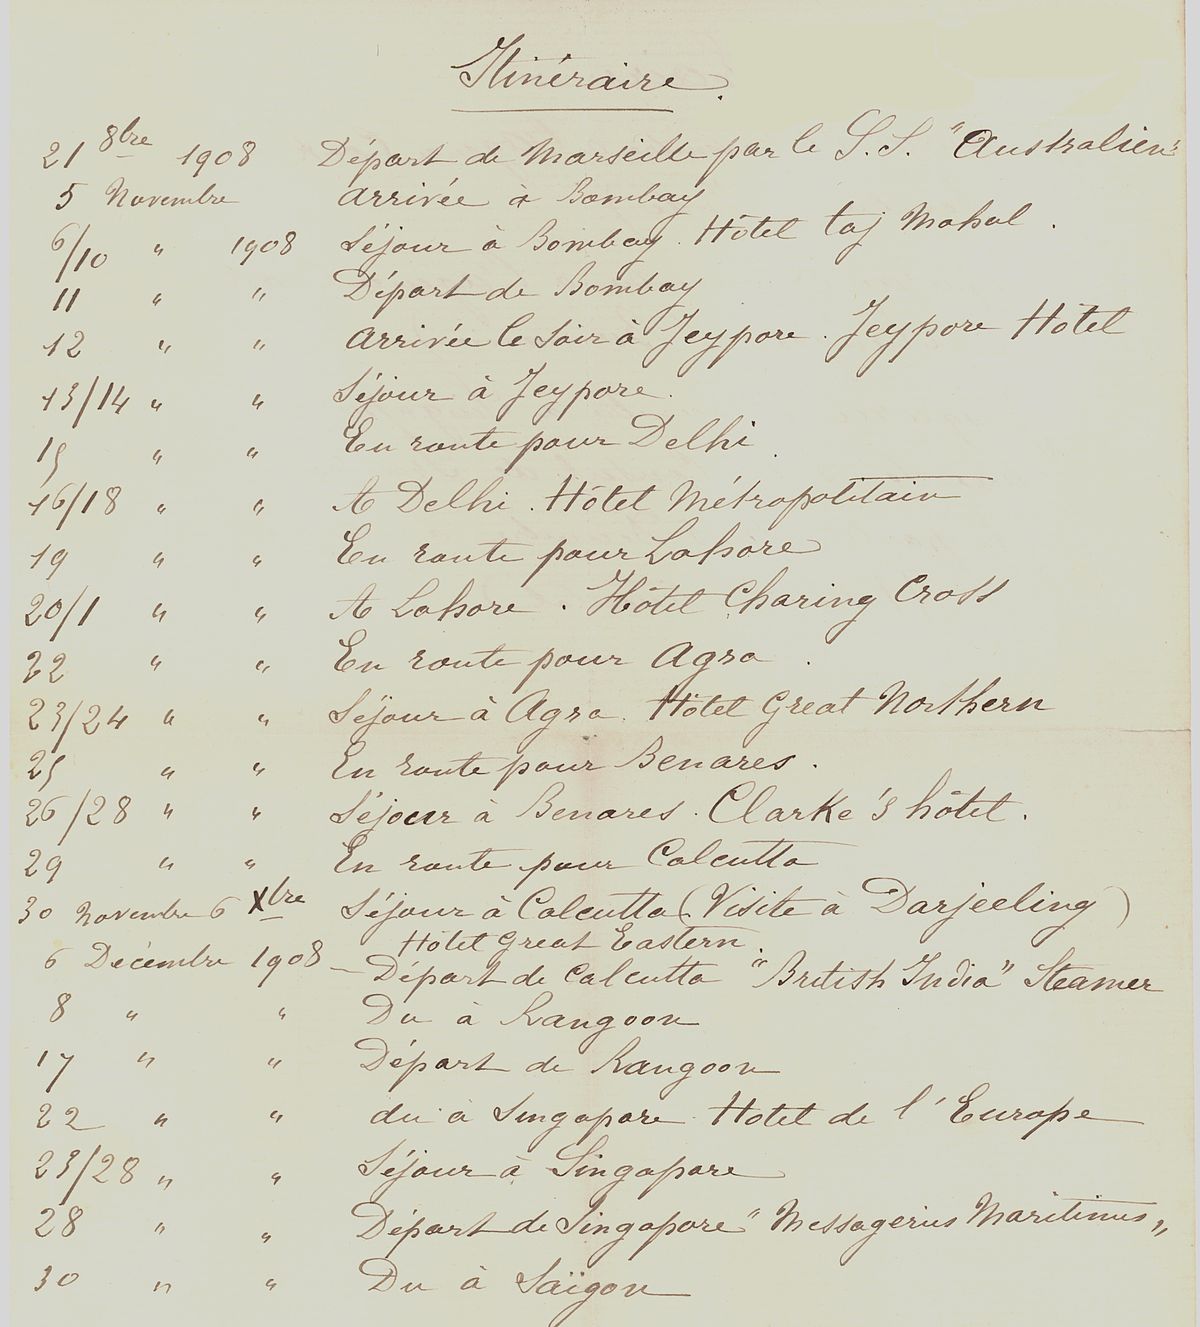 Itinéraire.
21 8bre 1908 Départ de Marseille par le S.S. "Australien"
5 Novembre arrivée à Bombay
6/10 " 1908 Séjour à Bombay. Hôtel taj Mahal.
11 " " Départ de Bombay
12 " " arrivée le soir à Jeypore. Jeypore Hôtel
13/14 " " Séjour à Jeypore.
15 " " En route pour Delhi.
16/18 " " A Delhi. Hôtel Métropolitain
19 " " En route pour Lahore
20/1 " " A Lahore. Hôtel Charing Cross
22 " " En route pour Agra.
23/24 " " Séjour à Agra. Hôtel Great Northern
25 " " En route pour Benares.
26/28 " " Séjour à Benares. Clarke's hôtel.
29 " " En route pour Calcutta
30 Novembre 6 Xbre Séjour à Calcutta (Visite à Darjeeling)
Hôtel Great Eastern.
6 Décembre 1908 – Départ de Calcutta "British India" Steamer
8 " " Du à Rangoon
17 " " Départ de Rangoon
22 " " du à Singapore Hotel de l'Europe
23/28 " " Séjour à Singapore
28 " " Départ de Singapore "Messageries Maritimes"
30 " " Du à Saïgon